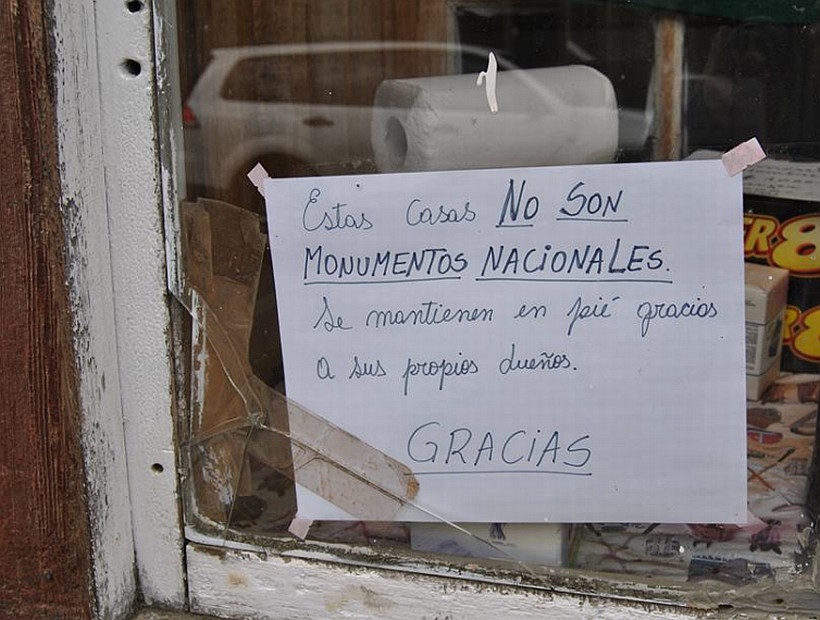 Estas casas NO SON
MONUMENTOS NACIONALES.
Se mantienen en pié gracias
a sus propios dueños.
GRACIAS
ER 8
8